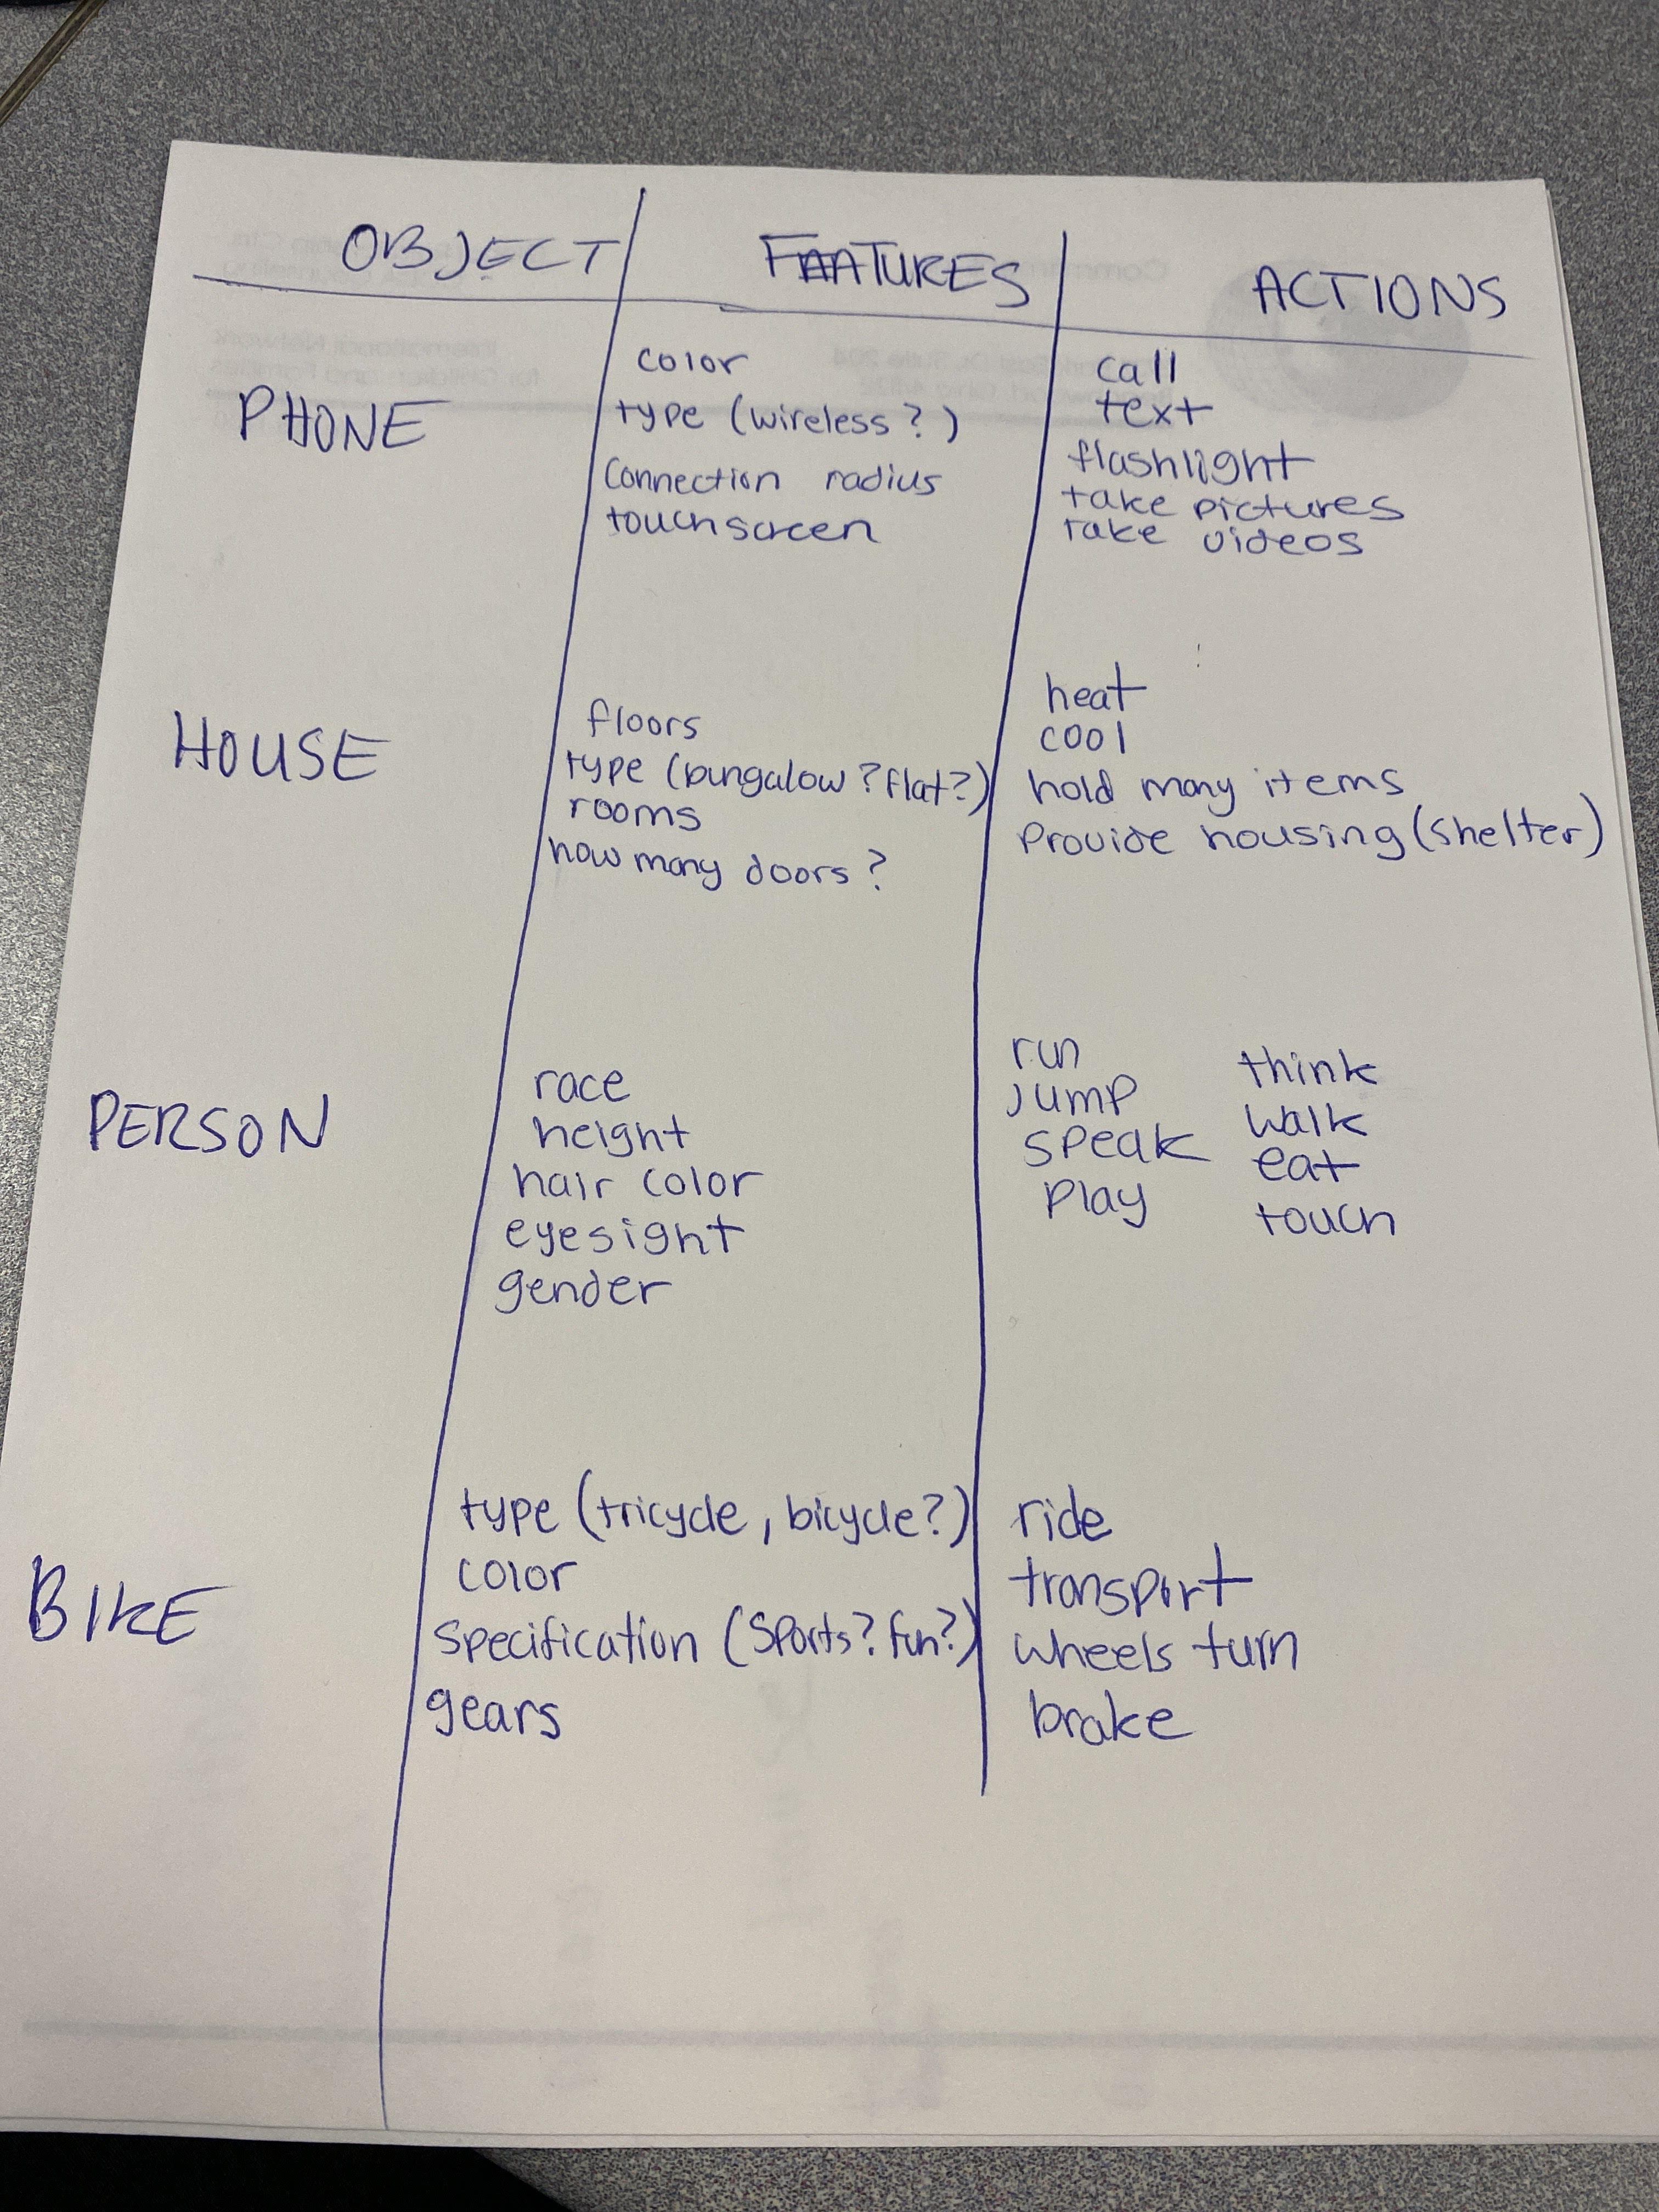 OBJECT FEATURES ACTIONS
PHONE
color
type (wireless?)
Connection radius
touchscreen
call
text
flashlight
take pictures
take videos
HOUSE
floors
type (bungalow? flat?)
rooms
how many doors?
heat
cool
hold many items
Provide housing (shelter)
PERSON
race
height
hair color
eyesight
gender
run
jump
speak
play
think
walk
eat
touch
BIKE
type (tricycle, bicycle?)
color
specification (Sports? fun?)
gears
ride
transport
wheels turn
brake